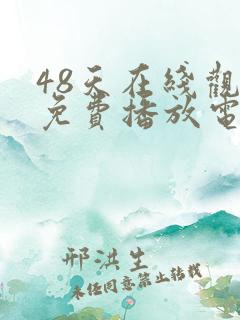 48天在线觀
免費播放電
邢洪生
未经同意禁止转载